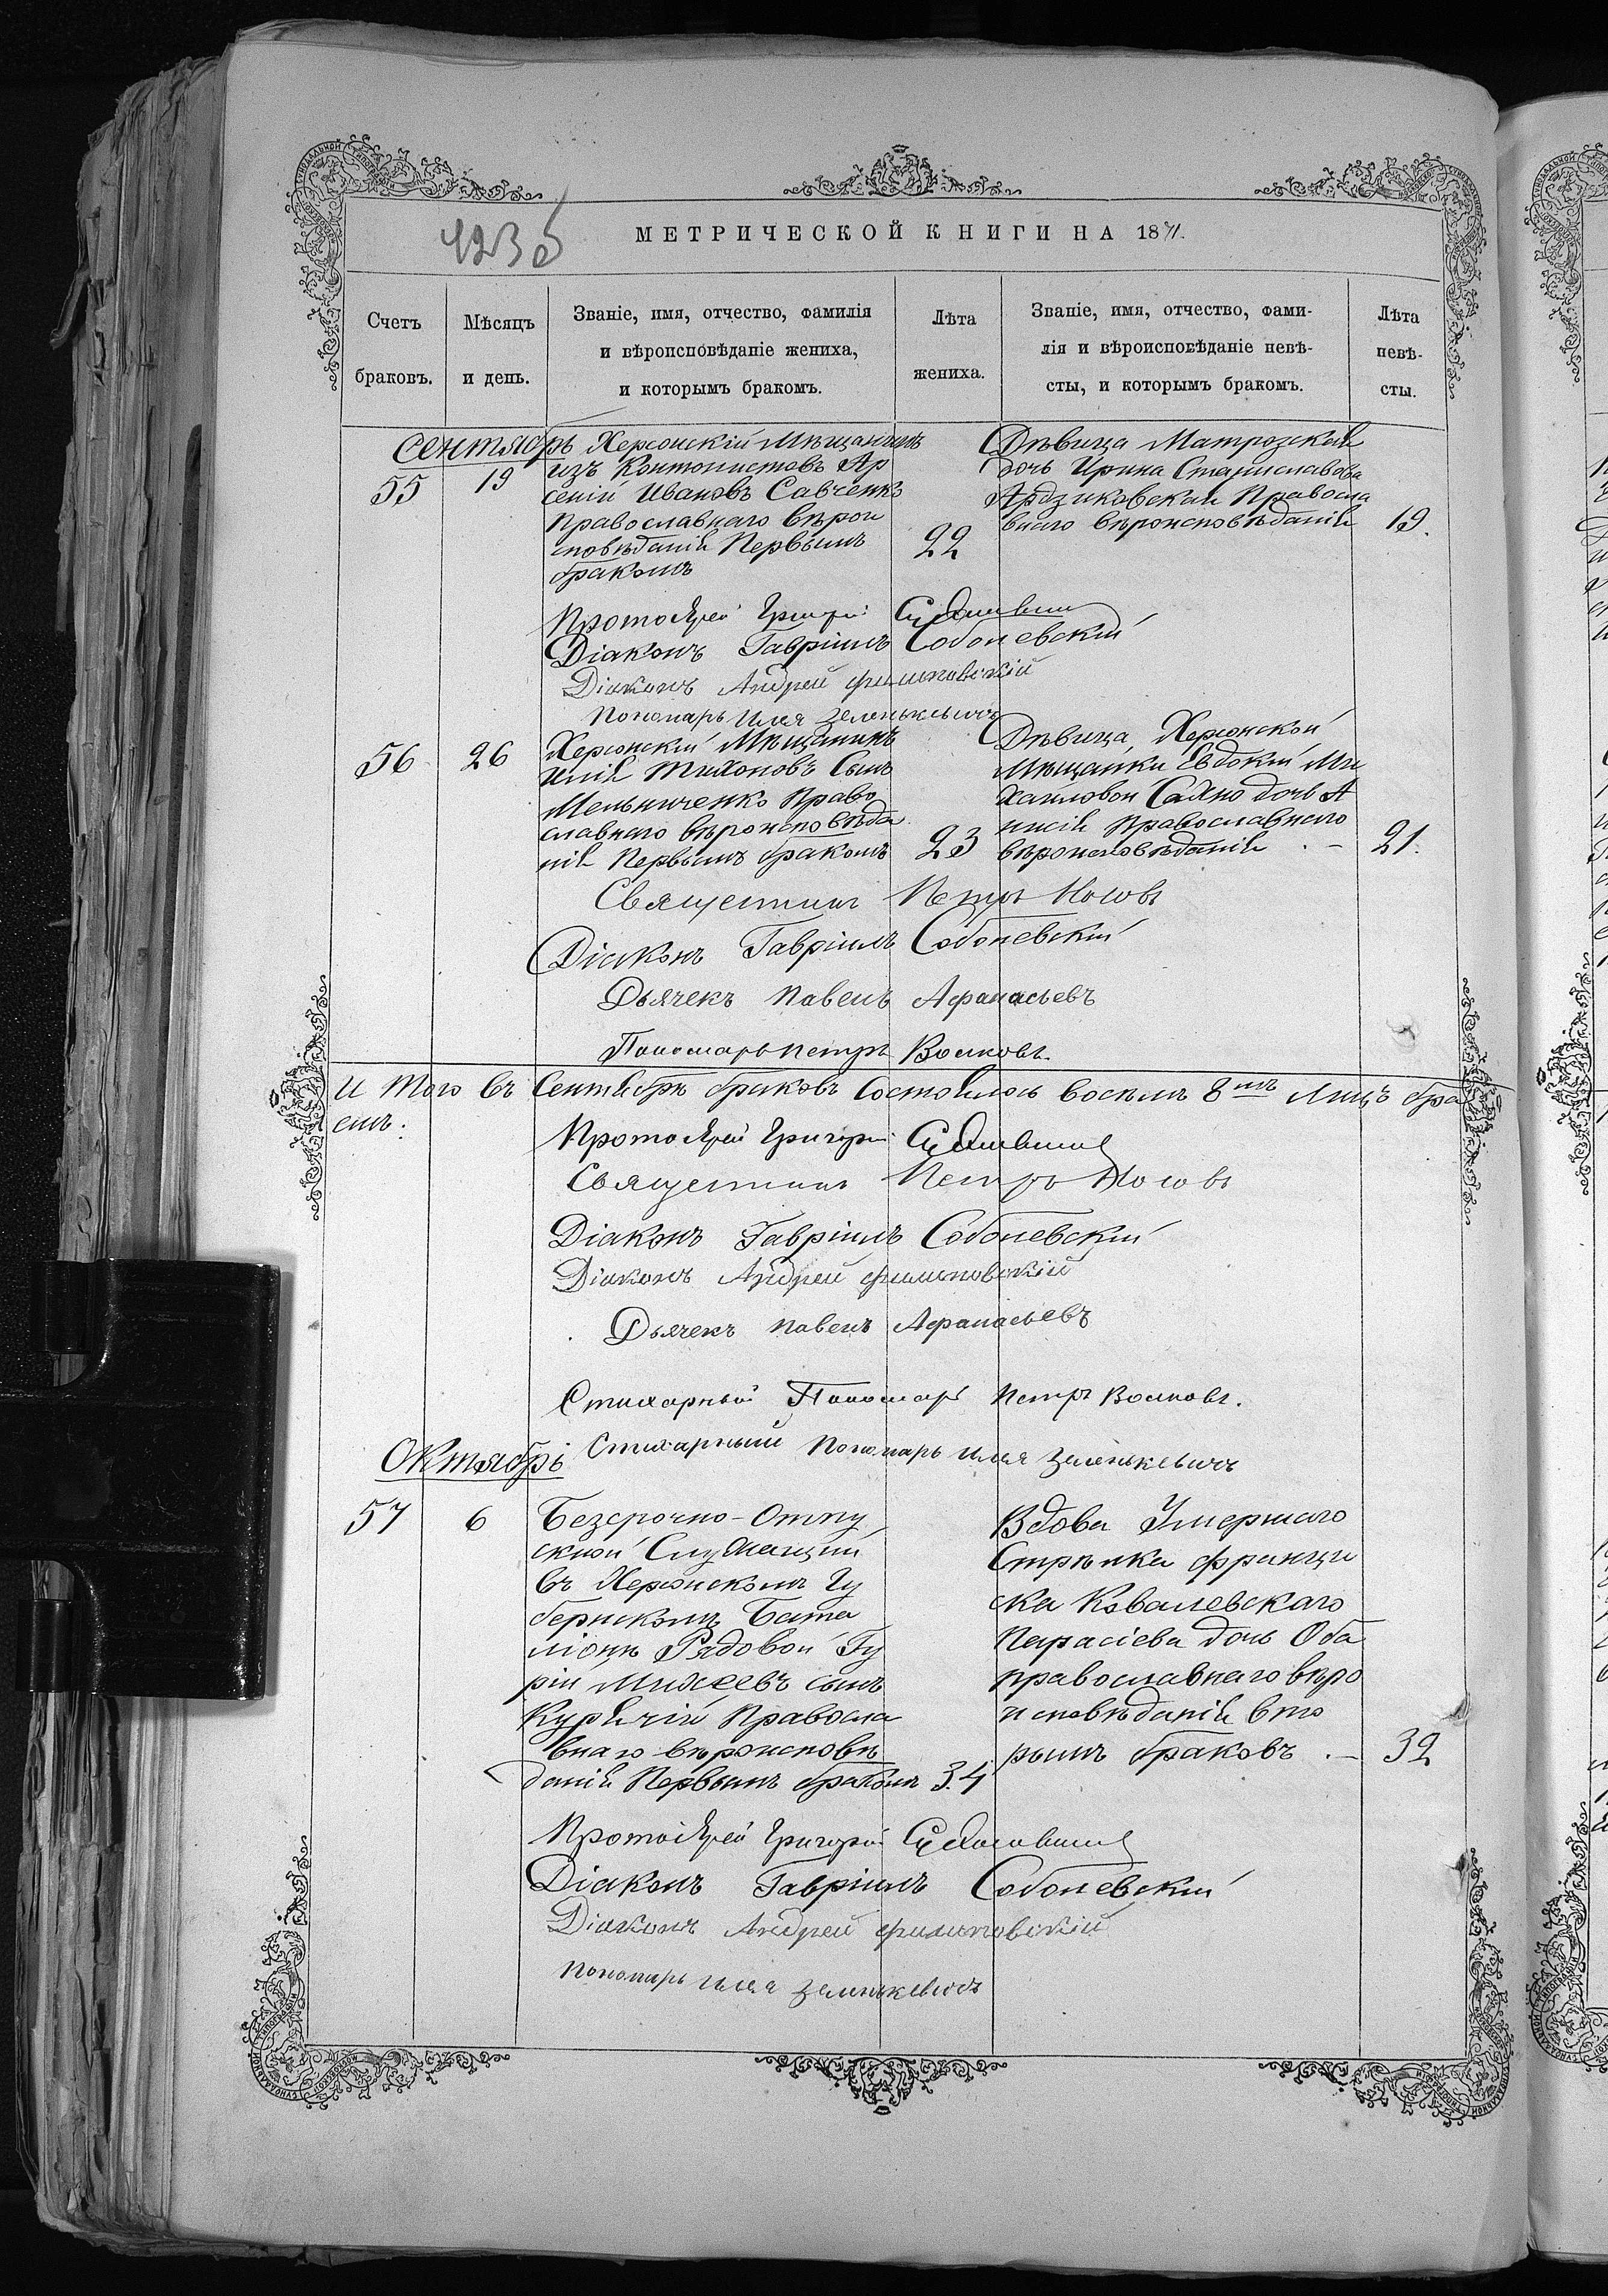 423 об
МЕТРИЧЕСКОЙ КНИГИ НА 1871.
Счетъ браковъ.
Мѣсяцъ и день.
Званіе, имя, отчество, фамилія
и вѣроисповѣданіе жениха,
и которымъ бракомъ.
Лѣта жениха.
Званіе, имя, отчество, фами-
лія и вѣроисповѣданіе невѣ-
сты, и которымъ бракомъ.
Лѣта невѣ-
сты.
Сентябрь
55 19
Херсонскій Мѣщанинъ
изъ Контонистовъ Ар
сеній Ивановъ Савченко
Православнаго вѣрои
сповѣданія Первымъ
бракомъ
22
Дѣвица Матрозская
дочь Ирина Станиславова
Ардзиковская Правосла
внаго вѣроисповѣданія
19.
Протоіерей Григорій
Діаконъ Гавріилъ Соболевскій
Діаконъ Андрей Филиповскій
Пономарь Илья Зеленькевичъ
56 26
Херсонскій Мѣщанинъ
Илія Тихоновъ Сынъ
Мельниченко Право
славнаго вѣроисповѣда
нія Первымъ бракомъ
23
Дѣвица, Херсонской
Мѣщанки Евдокіи Ми
хайловой Сахно дочь А
нисія Православнаго
вѣроисповѣданія . —
21.
Священникъ Петръ Носовъ
Діаконъ Гавріилъ Соболевскій
Дьячекъ Павелъ Афанасьевъ
Пономарь Петръ Волковъ.
И Того въ Сентябрѣ браковъ Состоялось восемь 8мь
Протоіерей Григорій
Священникъ Петръ Носовъ
Діаконъ Гавріилъ Соболевскій
Діаконъ Андрей Филиповскій
Дьячекъ Павелъ Афанасьевъ
Стихарный Пономарь Петръ Волковъ.
Стихарный Пономарь Илья Зеленькевичъ
Октябрь
57 6
Безсрочно-Отпу
скной Служащій
въ Херсонскомъ Гу
бернскомъ Бата
ліонѣ Рядовой Гу
рій Михеевъ сынъ
Курячій Правосла
внаго вѣроисповѣ
данія Первымъ бракомъ
34
Вдова Умершаго
Стрѣлка Франци
ска Ковалевскаго
Парасіева дочь Оба
православнаго вѣро
исповѣданія вто
рымъ браковъ . —
32
Протоіерей Григорій
Діаконъ Гавріилъ Соболевскій
Діаконъ Андрей Филиповскій
Пономарь Илья Зеленькевичъ